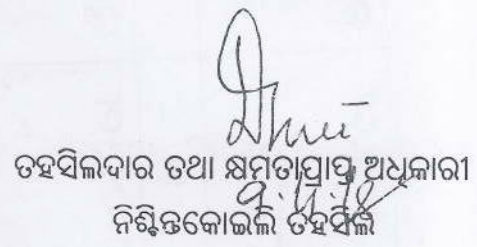 ତହସିଲଦାର ତଥା କ୍ଷମତାପ୍ରାପ୍ତ ଅଧିକାରୀ
ନିଶ୍ଚିନ୍ତକୋଇଲି ତହସିଲ